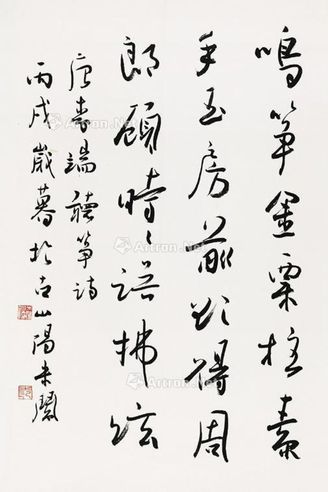 鳴箏金粟柱素
手玉房前欲得周
郎顧時〻誤拂弦
唐李端聽箏詩
丙戌歲暮於古山陽
Artron.Net
Artron.Net
Artron.Net
Artron.Net